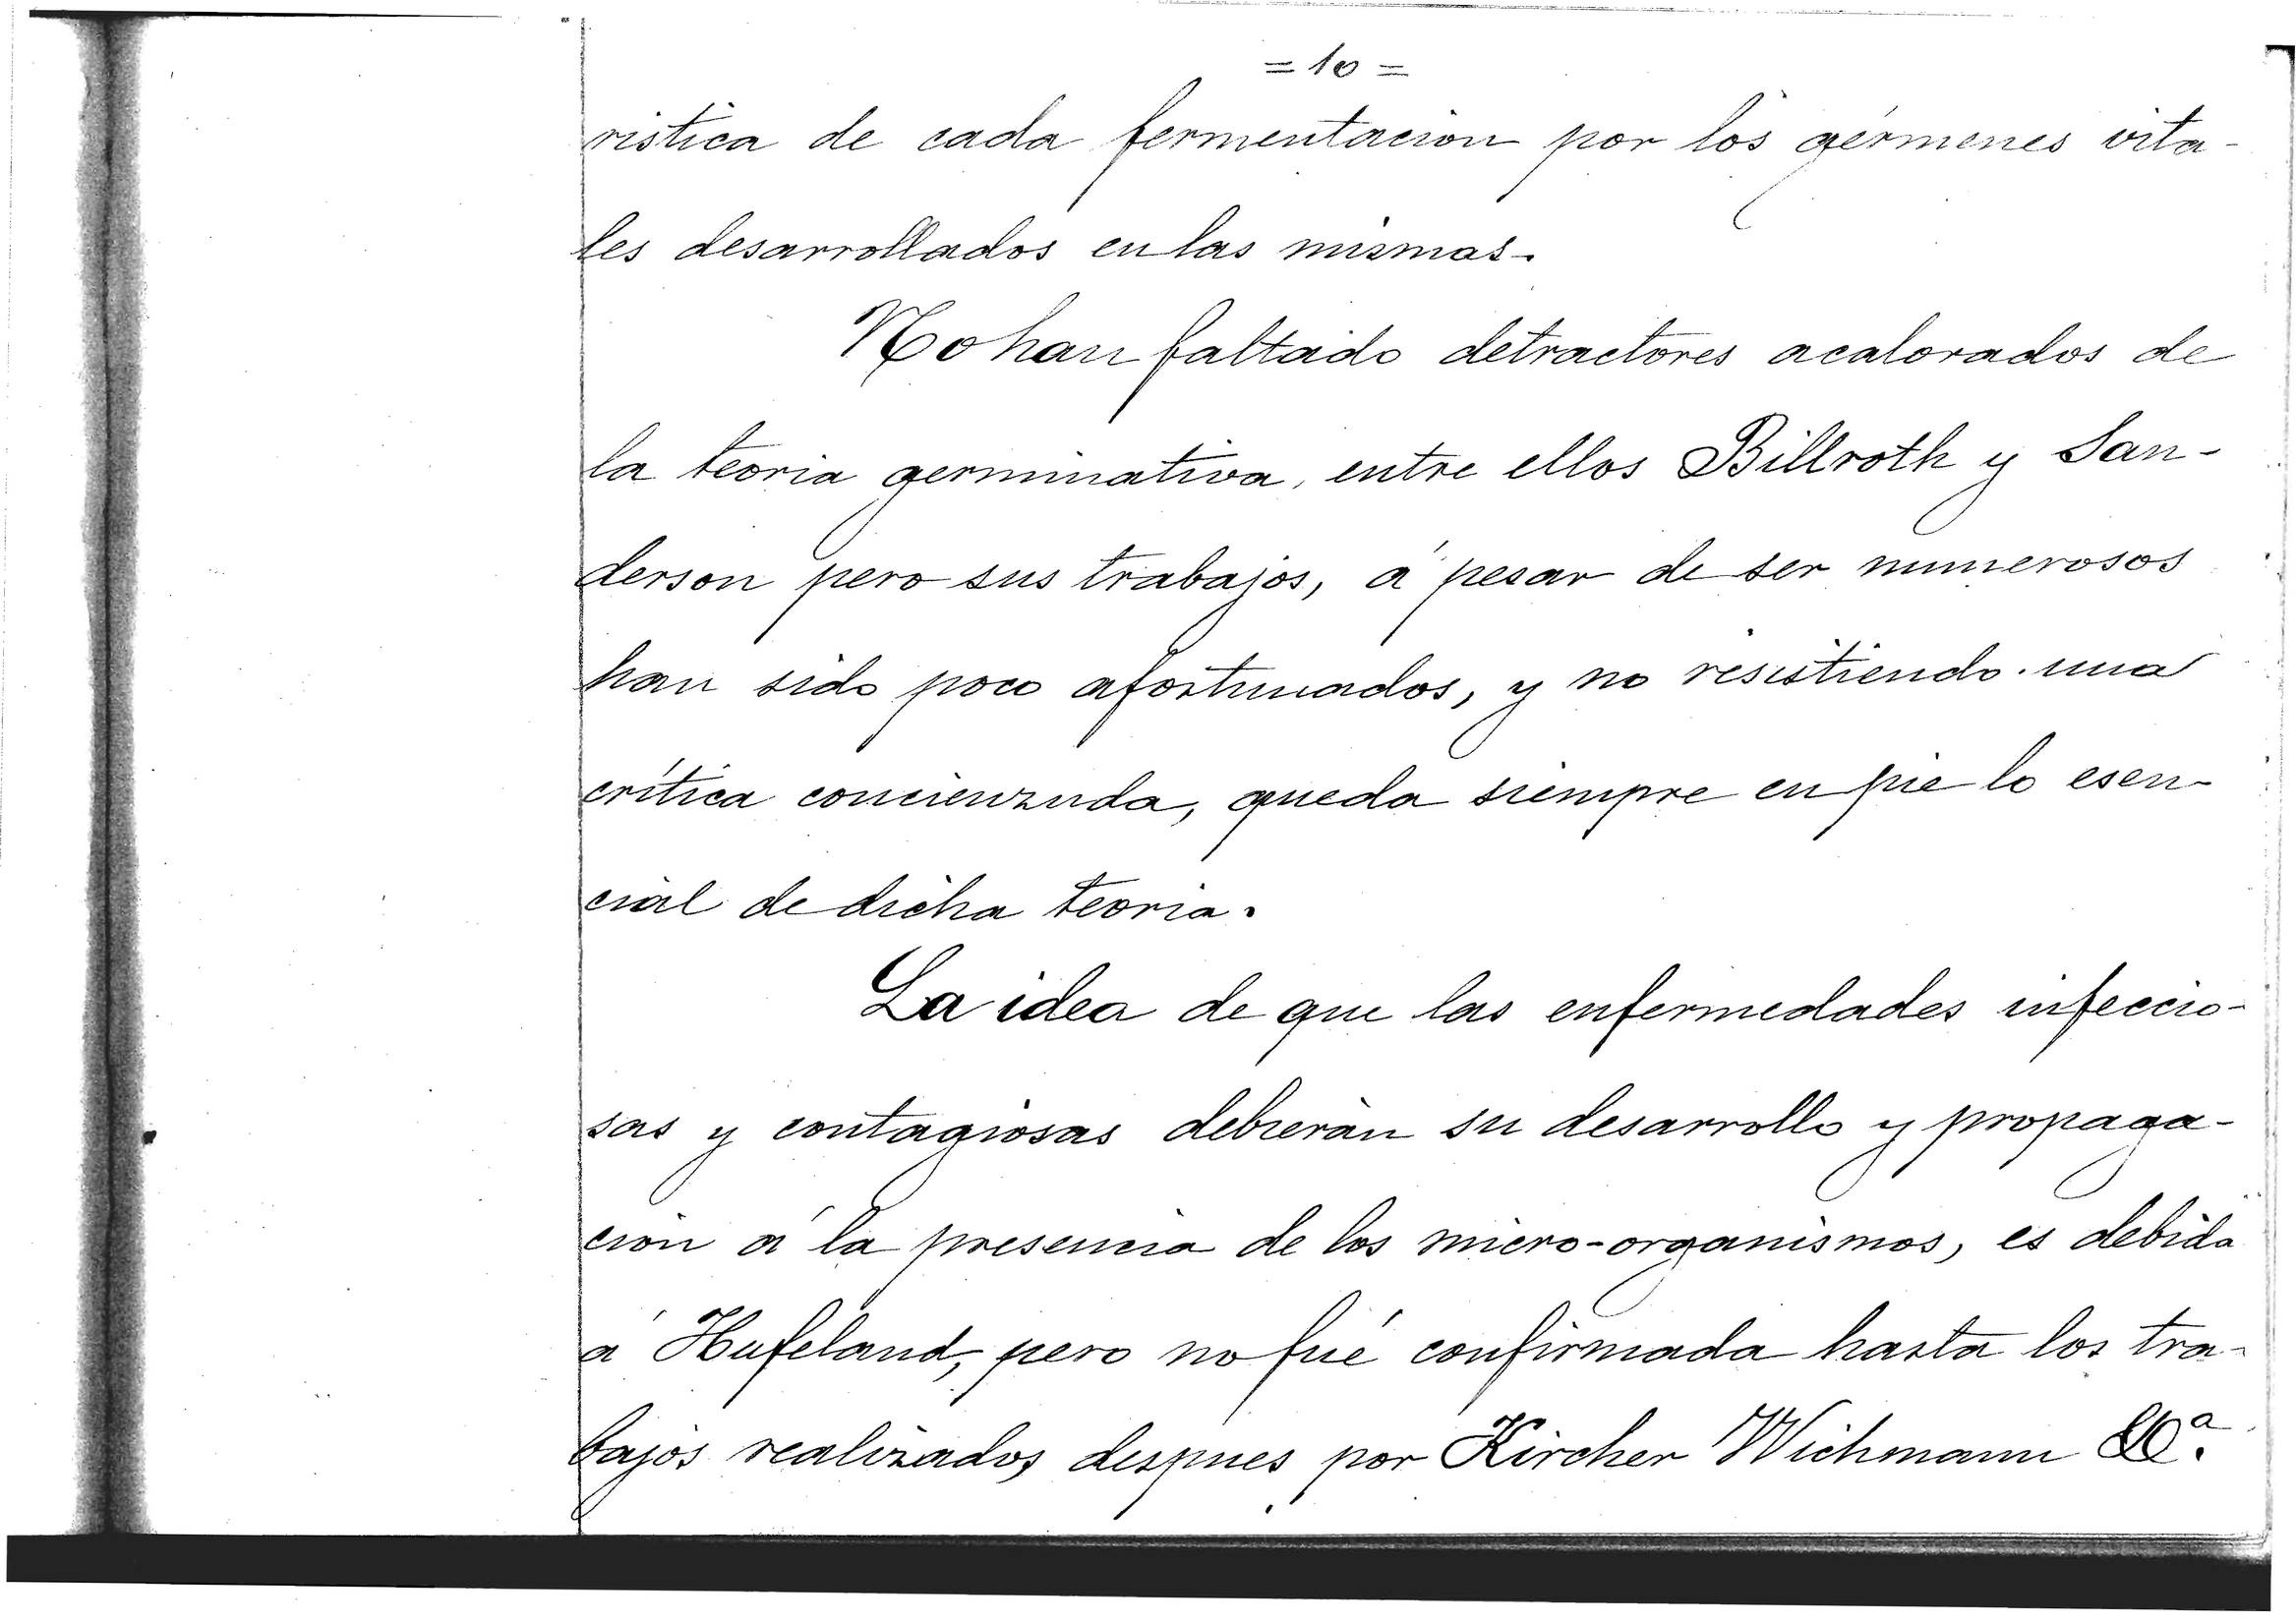 = 10 =
ristica de cada fermentacion por los gérmenes vita-
les desarrollados en las mismas.
No han faltado detractores acalorados de
la teoria germinativa, entre ellos Billroth y San-
derson pero sus trabajos, á pesar de ser numerosos
han sido poco afortunados, y no resistiendo una
crítica concienzuda, queda siempre en pie lo esen-
cial de dicha teoria.
La idea de que las enfermedades infeccio-
sas y contagiosas debieran su desarrollo y propaga-
cion á la presencia de los micro-organismos, es debida
á Hufeland, pero no fué confirmada hasta los tra-
bajos realizados despues por Kircher Wichmann &ª.